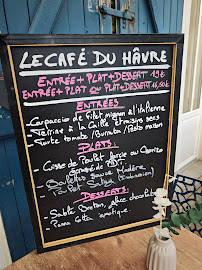 LE CAFÉ DU HÂVRE
ENTRÉE + PLAT + DESSERT 19€
ENTRÉE + PLAT OU PLAT + DESSERT 16,50€
ENTRÉES
- Carpaccio de filet mignon à l'italienne
- Terrine à la Caille et raisins secs
- Tarte tomate / Burrata / Pesto maison
PLATS:
- Cuisse de Poulet farcie au Chorizo
- Boulettes sauce Madère
DESSERTS
- Sablé Breton, glace chocolat
- Panna Cotta exotique.